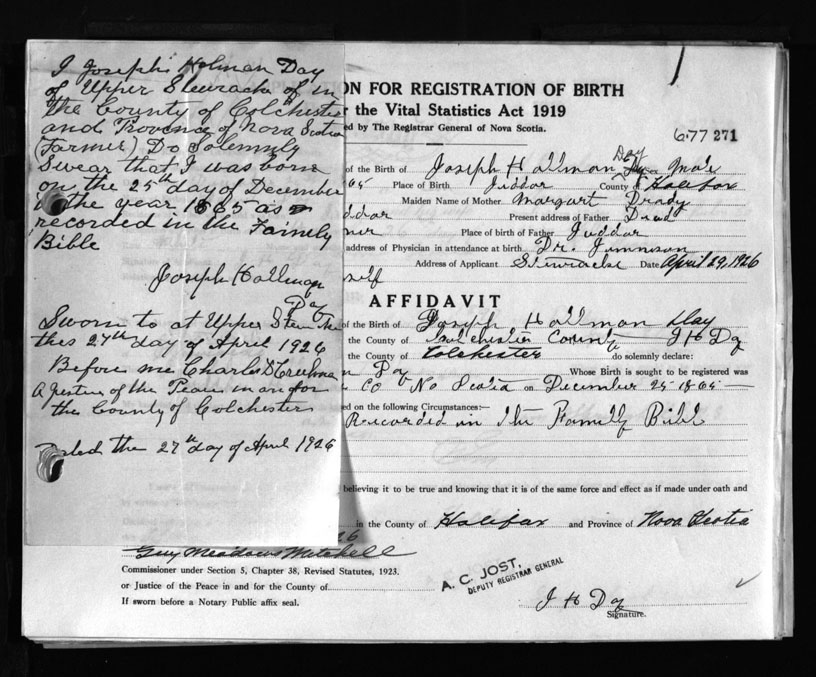 I Joseph Holman Day
of Upper Stewiacke of in
the County of Colchester
and Province of Nova Scotia
(Farmer) Do Solemnly
Swear that I was born
on the 25th day of December
in the year 1865 as
recorded in the Family
Bible
Joseph Hollman
Day
Sworn to at Upper
this 27th day of April 1926
Before me Charles D Creelman
A Justice of the Peace in and for
the County of Colchester
Dated the 27th day of April 1926
ON FOR REGISTRATION OF BIRTH
the Vital Statistics Act 1919
ed by The Registrar General of Nova Scotia.
677 271
of the Birth of Joseph Hollman Day Sex Male
65 Place of Birth Juddor County of Halifax
Maiden Name of Mother Margart Brady
Present address of Father Dead
Place of birth of Father Juddor
address of Physician in attendance at birth Dr.
Address of Applicant Stewiacke Date April 29, 1926
self
AFFIDAVIT
of the Birth of Joseph Hollman Day
the County of Colchester County J H Day
the County of Colchester do solemnly declare:
Day Whose Birth is sought to be registered was
Co No Scotia on December 25-1865
ed on the following Circumstances:—
Recorded in the Family Bible
believing it to be true and knowing that it is of the same force and effect as if made under oath and
in the County of Halifax and Province of Nova Scotia
26
Guy Meadows Mitchell
Commissioner under Section 5, Chapter 38, Revised Statutes, 1923.
or Justice of the Peace in and for the County of
If sworn before a Notary Public affix seal.
A. C. JOST,
DEPUTY REGISTRAR GENERAL
J H Day
Signature.